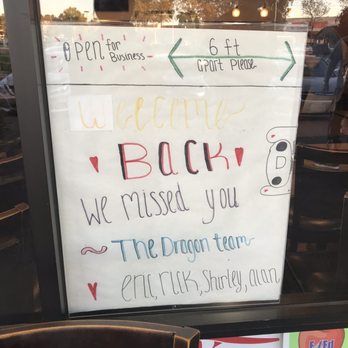 Open for Business
6 ft
apart Please
Welcome
BACK
We missed you
~ The Dragon team
eric, rick, Shirley, alan
D